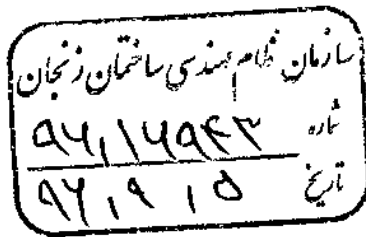 سازمان نظام مهندسی ساختمان زنجان
شماره ۹۶,۱۶۹۴۳
تاریخ ۹۶,۹,۵